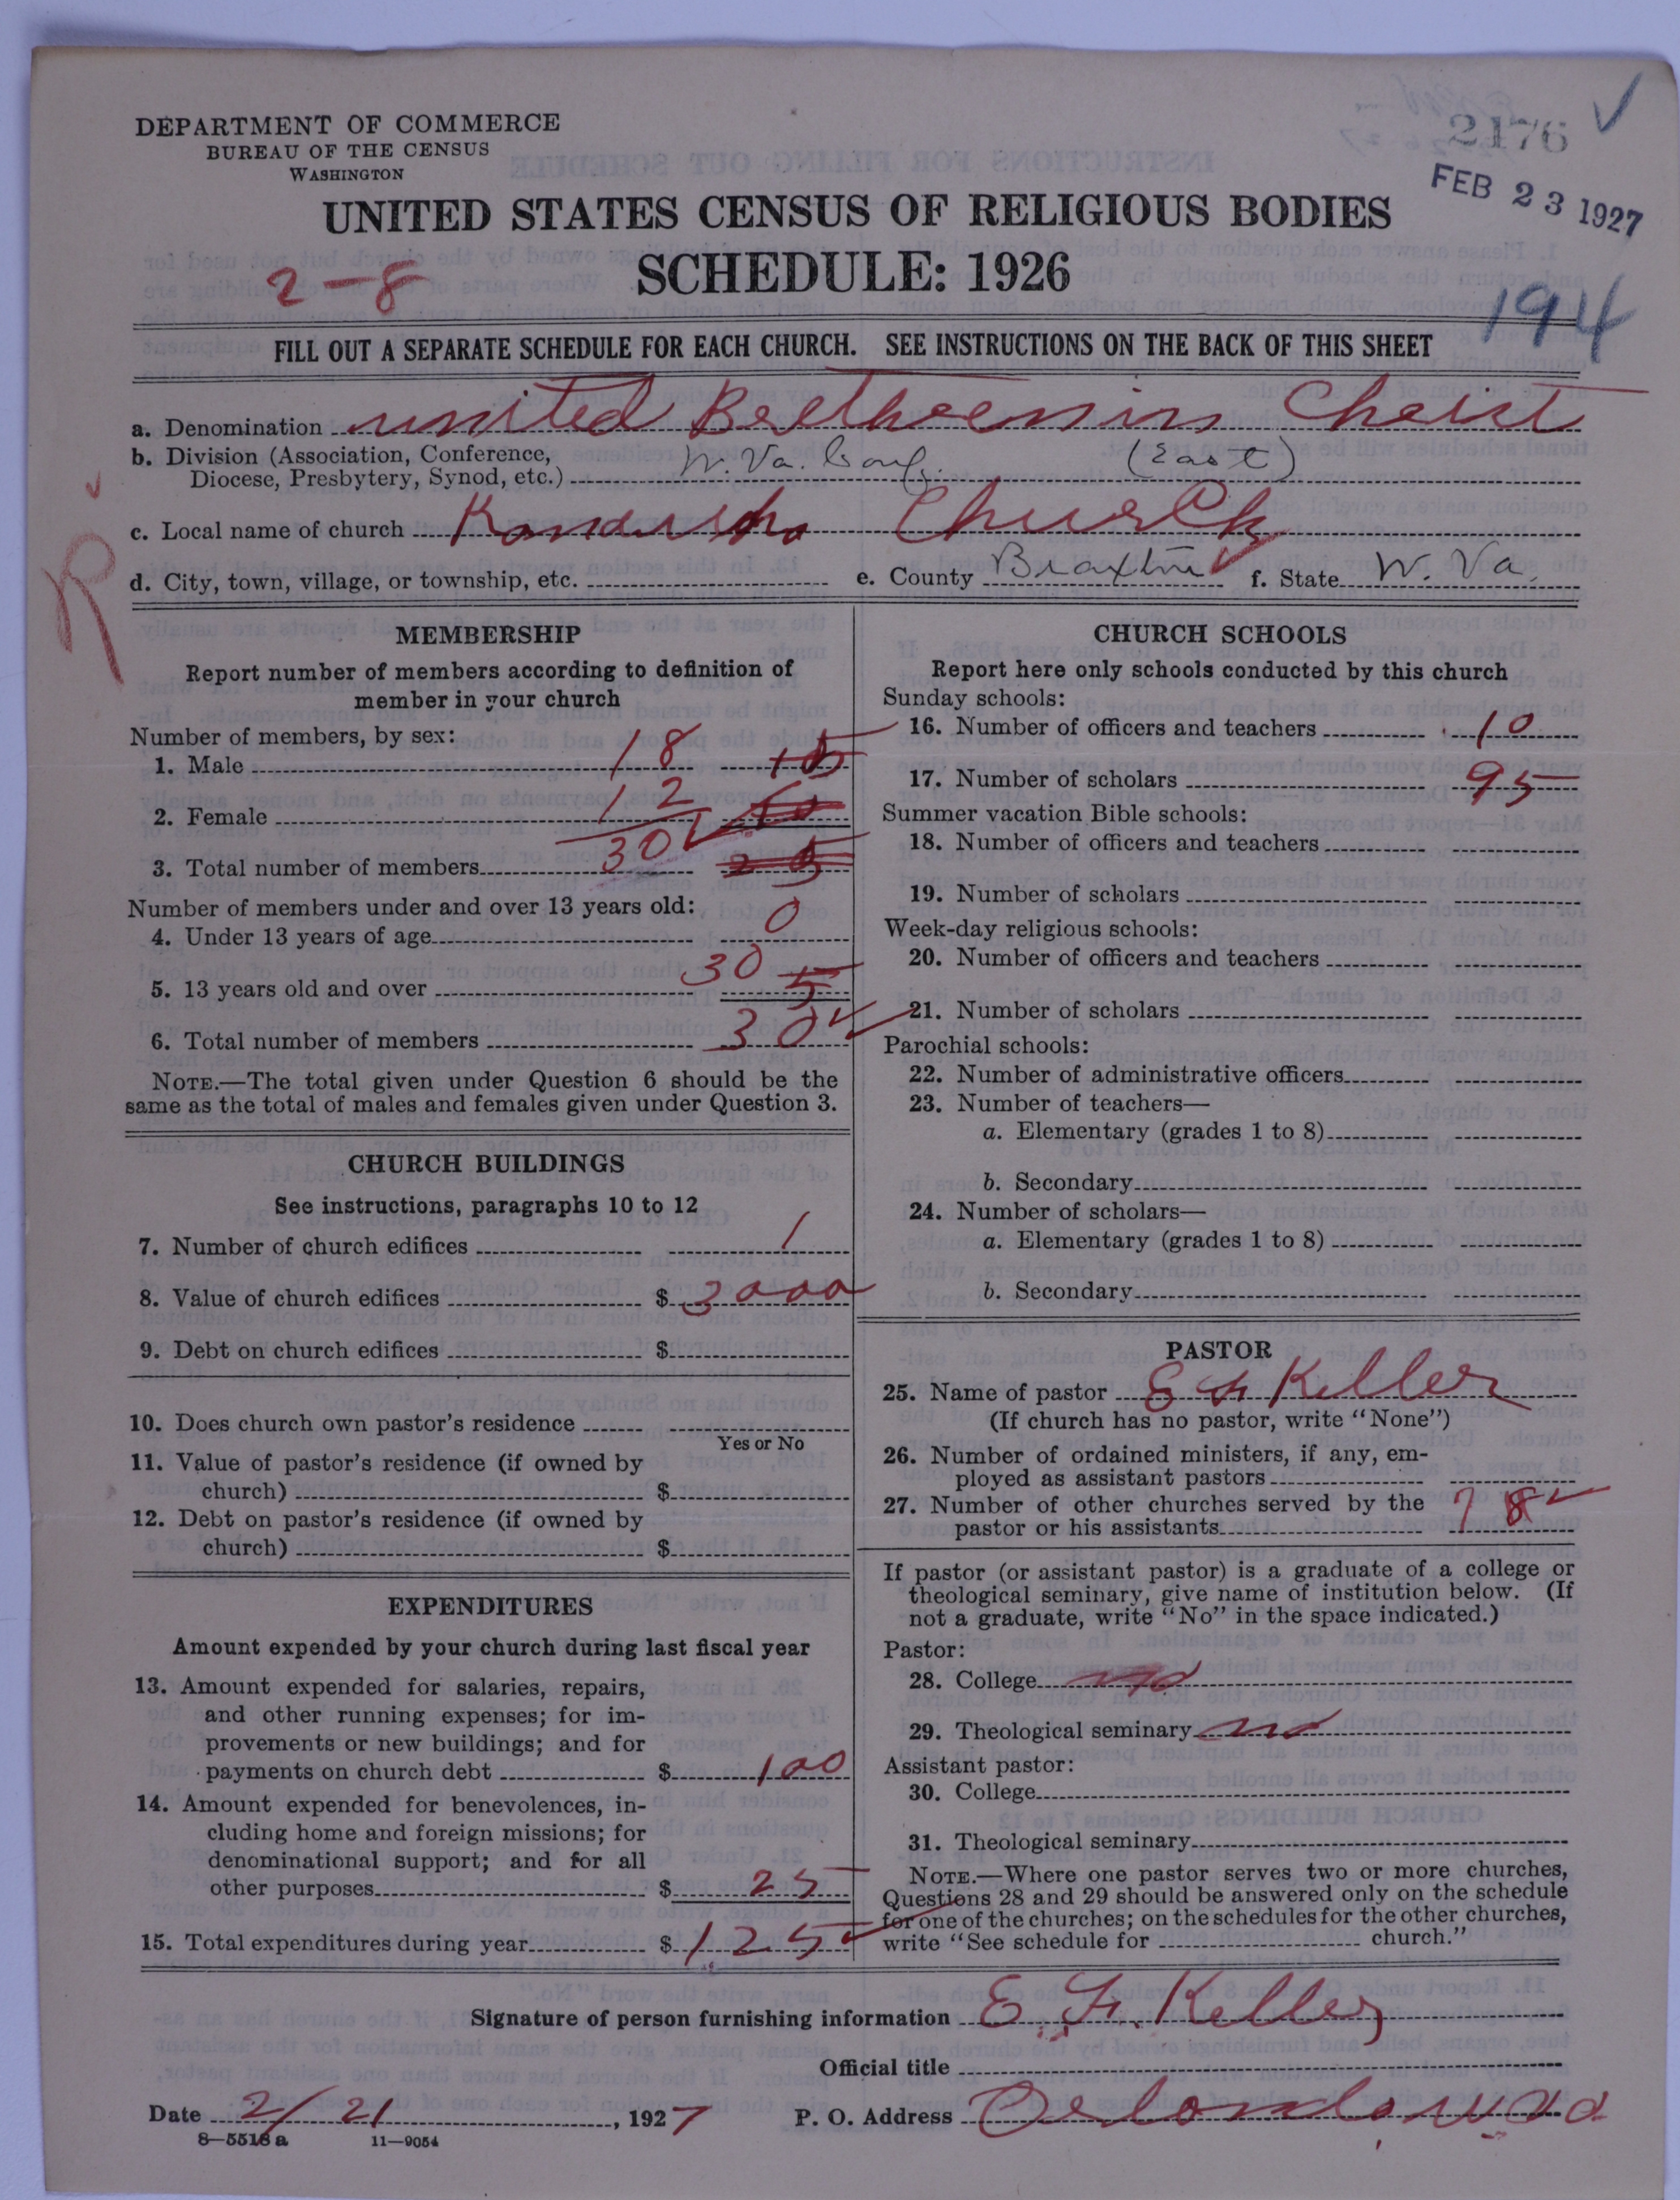 DEPARTMENT OF COMMERCE
BUREAU OF THE CENSUS
WASHINGTON
2176
FEB 23 1927
UNITED STATES CENSUS OF RELIGIOUS BODIES
2-8
SCHEDULE: 1926
194
FILL OUT A SEPARATE SCHEDULE FOR EACH CHURCH. SEE INSTRUCTIONS ON THE BACK OF THIS SHEET
a. Denomination United Bretheren in Christ
b. Division (Association, Conference,
Diocese, Presbytery, Synod, etc.) W. Va. Conf. (East)
c. Local name of church Church
R
d. City, town, village, or township, etc. e. County Braxton f. State W. Va.
MEMBERSHIP
Report number of members according to definition of
member in your church
Number of members, by sex:
1. Male 18
2. Female 12
3. Total number of members 30
Number of members under and over 13 years old:
4. Under 13 years of age 0
5. 13 years old and over 30 5
6. Total number of members 30
NOTE.—The total given under Question 6 should be the
same as the total of males and females given under Question 3.
CHURCH BUILDINGS
See instructions, paragraphs 10 to 12
7. Number of church edifices 1
8. Value of church edifices $ 3000
9. Debt on church edifices $
10. Does church own pastor's residence
Yes or No
11. Value of pastor's residence (if owned by
church) $
12. Debt on pastor's residence (if owned by
church) $
EXPENDITURES
Amount expended by your church during last fiscal year
13. Amount expended for salaries, repairs,
and other running expenses; for im-
provements or new buildings; and for
payments on church debt $ 100
14. Amount expended for benevolences, in-
cluding home and foreign missions; for
denominational support; and for all
other purposes $ 25
15. Total expenditures during year $ 125
CHURCH SCHOOLS
Report here only schools conducted by this church
Sunday schools:
16. Number of officers and teachers 10
17. Number of scholars 95
Summer vacation Bible schools:
18. Number of officers and teachers
19. Number of scholars
Week-day religious schools:
20. Number of officers and teachers
21. Number of scholars
Parochial schools:
22. Number of administrative officers
23. Number of teachers—
a. Elementary (grades 1 to 8)
b. Secondary
24. Number of scholars—
a. Elementary (grades 1 to 8)
b. Secondary
PASTOR
25. Name of pastor E F Keller
(If church has no pastor, write "None")
26. Number of ordained ministers, if any, em-
ployed as assistant pastors
27. Number of other churches served by the
pastor or his assistants 7 8
If pastor (or assistant pastor) is a graduate of a college or
theological seminary, give name of institution below. (If
not a graduate, write "No" in the space indicated.)
Pastor:
28. College no
29. Theological seminary no
Assistant pastor:
30. College
31. Theological seminary
NOTE.—Where one pastor serves two or more churches,
Questions 28 and 29 should be answered only on the schedule
for one of the churches; on the schedules for the other churches,
write "See schedule for church."
Signature of person furnishing information E. F. Keller
Official title
Date 2/21, 1927 P. O. Address Orlando W Va
8—5518 a 11—9054